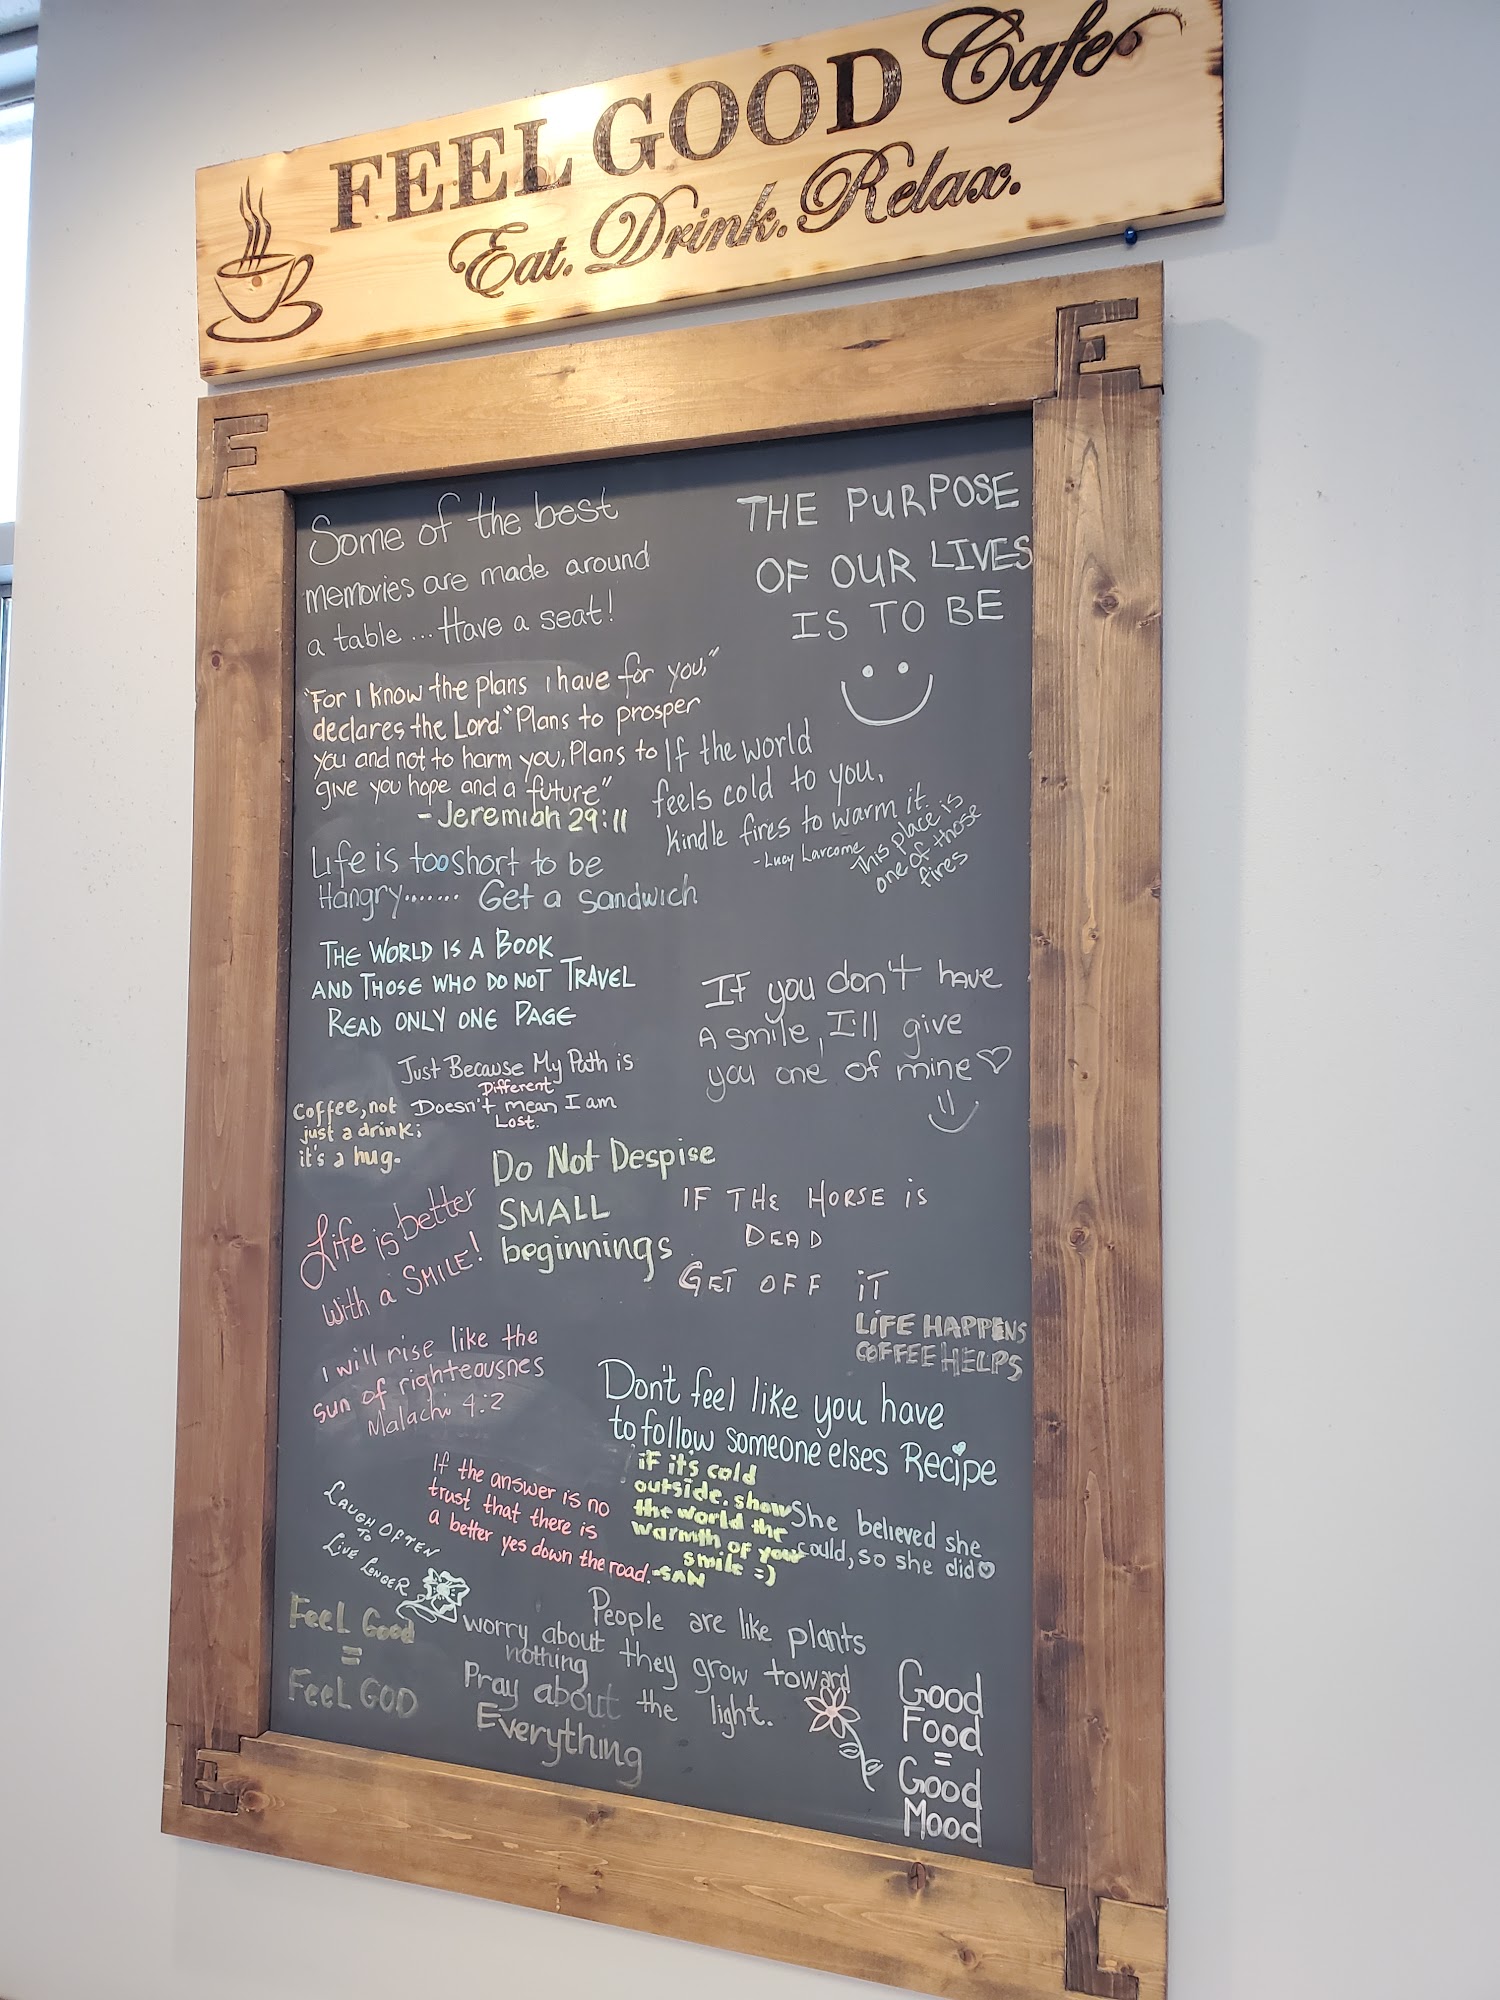 FEEL GOOD Cafe
Eat. Drink. Relax.
Some of the best
memories are made around
a table ... Have a seat!
THE PURPOSE
OF OUR LIVES
IS TO BE
"For I know the plans i have for you,"
declares the Lord."Plans to prosper
you and not to harm you, Plans to
give you hope and a future"
- Jeremiah 29:11
If the world
feels cold to you,
kindle fires to warm it.
- Lucy Larcome
This place is
one of those
fires
Life is too short to be
Hangry....... Get a sandwich
THE WORLD IS A BOOK
AND THOSE WHO DO NOT TRAVEL
READ ONLY ONE PAGE
If you don't have
A smile, I'll give
you one of mine
Just Because My Path is
Different
Doesn't mean I am
Lost.
Coffee, not
just a drink;
it's a hug.
Do Not Despise
SMALL
beginnings
IF THE HORSE is
DEAD
GET OFF iT
Life is better
with a SMILE!
LiFE HAPPENS
COFFEE HELPS
I will rise like the
sun of righteousnes
Malachi 4:2
Don't feel like you have
to follow someone elses Recipe
If the answer is no
trust that there is
a better yes down the road.
iF it's cold
outside. show
the world the
warmth of your
smile =)
-SAN
She believed she
could, so she did
LAUGH OFTEN
TO
LIVE LONGER
FeeL Good
=
FeeL GOD
worry about
nothing
Pray about
Everything
People are like plants
they grow toward
the light.
Good
Food
=
Good
Mood